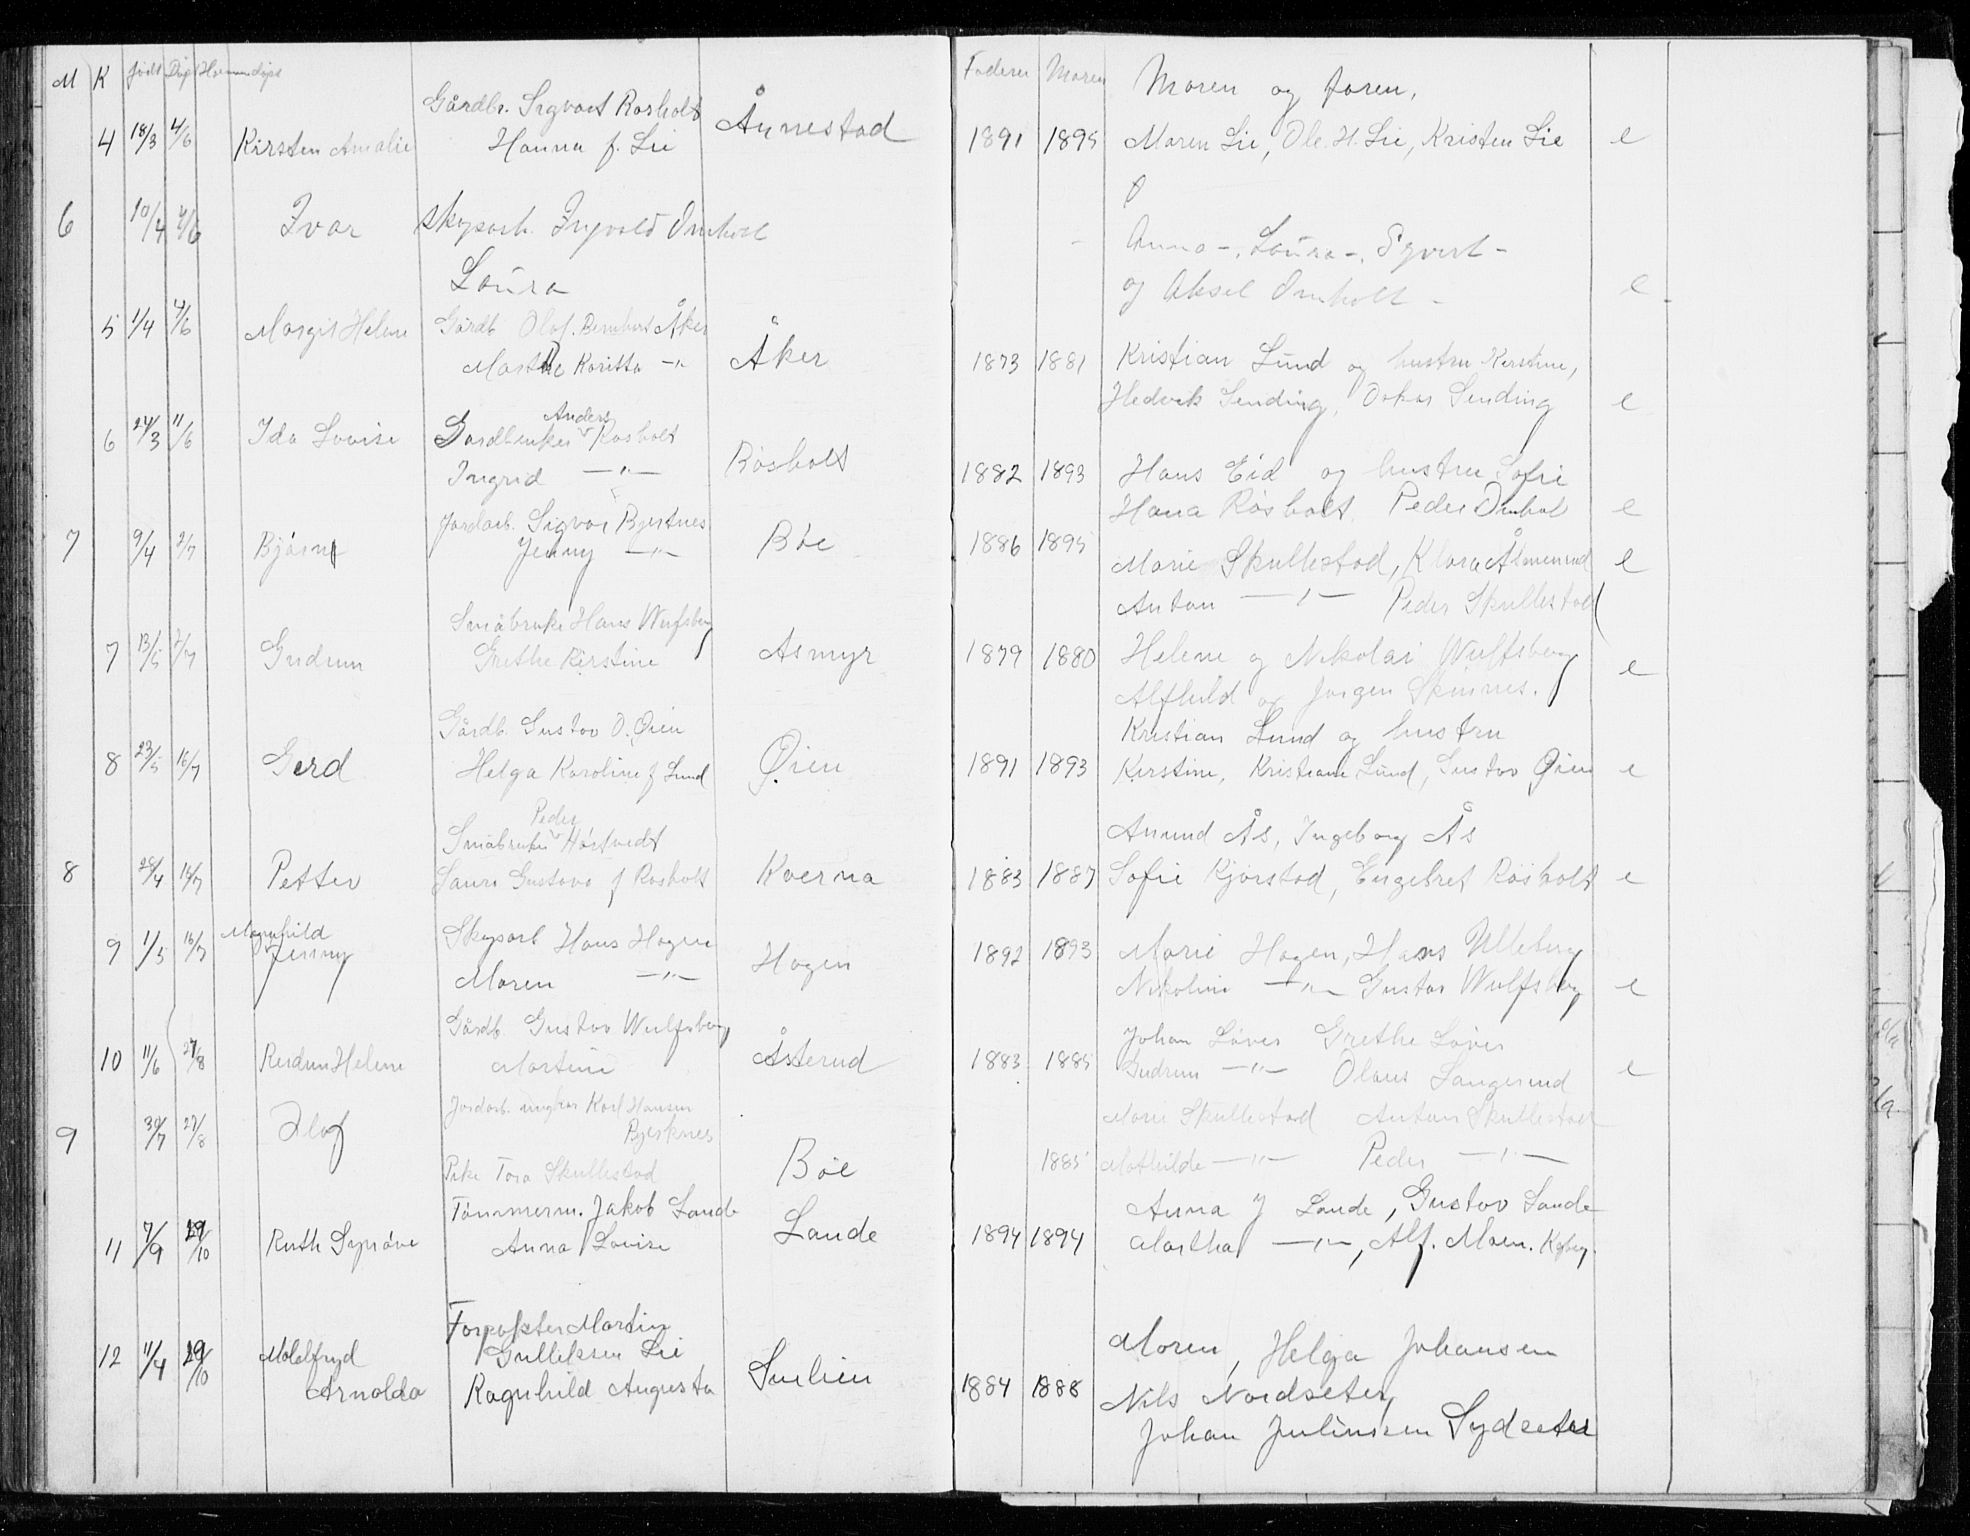 M K født Døpt Hjemmedøpt Faderen Moren
Gårdbr. Sigvart Rosholt Ånnestad Moren og faren,
4 18/3 4/6 Kirsten Amalie Hanna f. Lie 1891 1895 Maren Lie, Ole. H. Lie, Kristen Lie e
6 10/4 4/6 Ivar Skysarb. Ingvald Omholt
Anna -, Laura -, Sigvert -
Laura og Aksel Omholt - e
5 1/4 4/6 Margit Helene Gårdb Olaf. Bernhard Åker
Marthe Karitta -"- Åker 1873 1881 Kristian Lund og hustru Kirstine,
Hedvik Sending, Oskar Sending e
6 24/3 11/6 Ida Lovise Gardbruker Anders Rosholt
Ingrid -"- Rosholt 1882 1893 Hans Eid og hustru Sofie
Hana Rosholt, Peder Omhol e
7 9/4 2/7 Bjørn Jordarb. Sigvar Bjertnes
Jenny -"- Bøe 1886 1895 Marie Skullestad, Klara Ålmenrud e
Anton -"- Peder Skullestad
Småbruke Hans Wulfsberg
7 13/5 2/7 Gudrun Grethe Kirstine Asmyr 1879 1880 Helene og Nikolai Wulfsberg e
Alfhild og Jørgen Skinnes.
Gårdb. Gustav O. Øien Kristian Lund og hustru
8 23/5 16/7 Gerd Helga Karoline f Lund Øien 1891 1893 Kirstine, Kristiane Lund, Gustav Øien e
Småbruker Peder Hørtvedt Anund Ås, Ingeborg Ås
8 28/4 16/7 Petter Laura Gustava f Rosholt Kverna 1883 1887 Sofie Kjørstad, Engebret Rosholt e
9 1/5 16/7 Magnhild Jenny Skysarb Hans Hagen
Maren -"- Hagen 1892 1893 Marie Hagen, Hans Ulleberg
Nikoline -"- Gustav Wulfsberg e
Gårdb. Gustav Wulfsberg Johan Løver Grethe Løver
10 11/6 27/8 Reidun Helene Martine Åsterud 1883 1885 Gudrun -"- Olaus Langerud e
9 30/7 27/8 Olaf Jordarb. ungkar Karl Hansen Bjerknes
Marie Skullestad Anton Skullestad
Pike Tora Skullestad Bøe 1885 Mathilde -"- Peder -"-
Tømmerm. Jakob Lande Anna J Lande, Gustav Lande
11 7/9 29/10 Ruth Synøve Anna Lovise Lande 1894 1894 Martha -"-, Alf. Moen. Kgbrg.
Forpakter Martin
12 11/4 29/10 Målfryd Arnolda Gulliksen Lie
Ragnhild Augusta 1884 1888
Moren, Helga Johansen
Nils Nordseter,
Johan Juliussen Sydseter